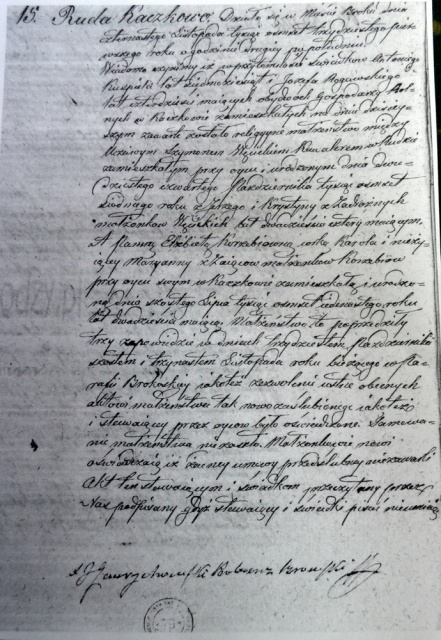 15. Ruda Kaczkowo. Działo się w Mieście Broku dnia
Czternastego Listopada tysiąc osiemset trzydziestego pier-
wszego roku o godzinie drugiey po południu
Wiadomo czyniemy iż w przytomności świadków Antoniego
lat siedmdziesiąt i Józefa
lat czterdzieści maiących obydwóch Gospodarzy Rol-
nych w Kaczkowie zamieszkałych na dniu dzisiey-
szym zawarte zostało religiyne małżeństwo między
Uczciwym Szymonem Kowalem w Rudki
zamieszkałym przy oycu i urodzonym dnia dwu-
dziestego czwartego Października tysiąc osiemset
siódmego roku z Jerzego i Krystyny z
małżonków lat dwadzieścia cztery maiącym,
A Panną Elżbietą córką Karola i nieży-
jącey Maryanny z Zaięców małżonków
przy oycu swym w Kaczkowie zamieszkałą i urodzo-
ną dnia szóstego Lipca tysiąc osiemset iedenastego roku
lat dwadzieścia maiącą. Małżeństwo to poprzedziły
trzy zapowiedzie w dniach trzydziestym Października
szóstym i trzynastym Listopada roku bieżącego w Pa-
rafii Brokoskiey iakoteż zezwolenie ustne obecnych
aktowi małżeństwa tak nowozaślubionego iakoteż
i stawaiącey przez oyców było oświadczone. Tamowa-
nie małżeństwa nie zaszło. Małżonkowie nowi
oświadczaią iż żadney umowy przedślubney nie zawarli
Akt ten stawaiącym i świadkom przeczytany przez
Nas podpisany gdyż stawaiący i świadki pisać nieumieią